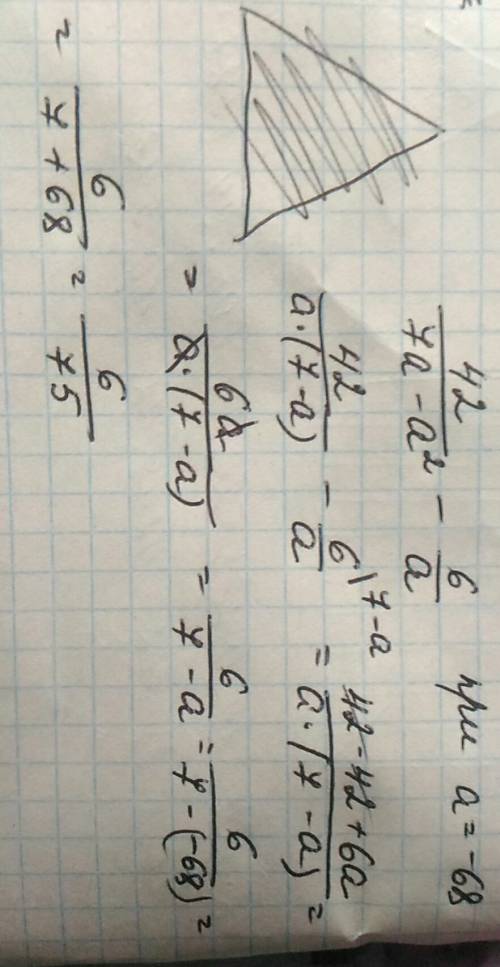 42/(7a - a²) - 6/a при a = -68
42/(a·(7-a)) - 6/a \7-a = (42-42+6a)/(a·(7-a)) =
= 6a/(a·(7-a)) = 6/(7-a) = 6/(7-(-68)) =
= 6/(7+68) = 6/75